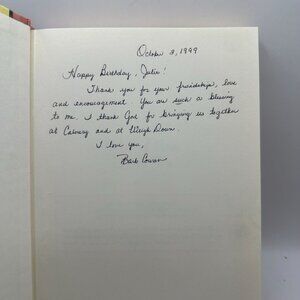 October 3, 1999
Happy Birthday, Julie!
Thank you for your friendship, love
and encouragement. You are such a blessing
to me. I thank God for bringing us together
at Calvary and at Weigh Down.
I love you,
Barb Cowan